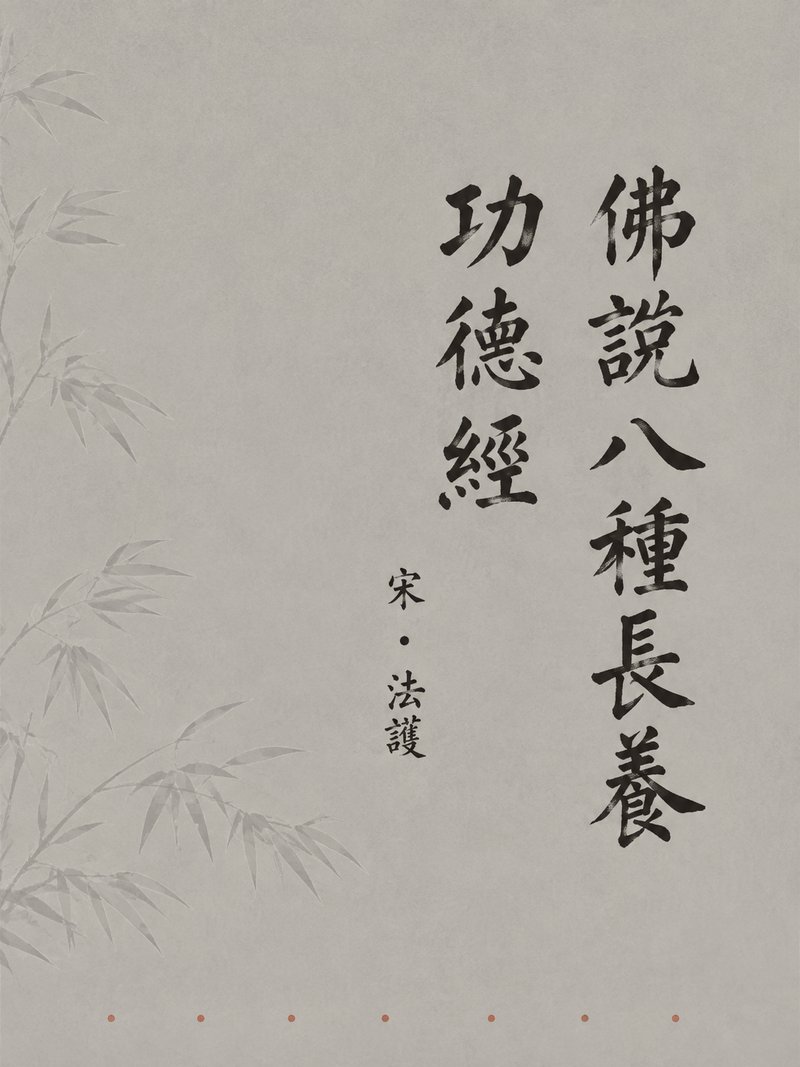 佛說八種長養
功德經
宋·法護